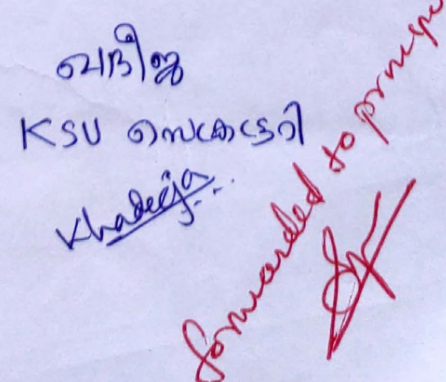 ഖദീജ
KSU സെക്രട്ടറി
Khadeeja
forwarded to